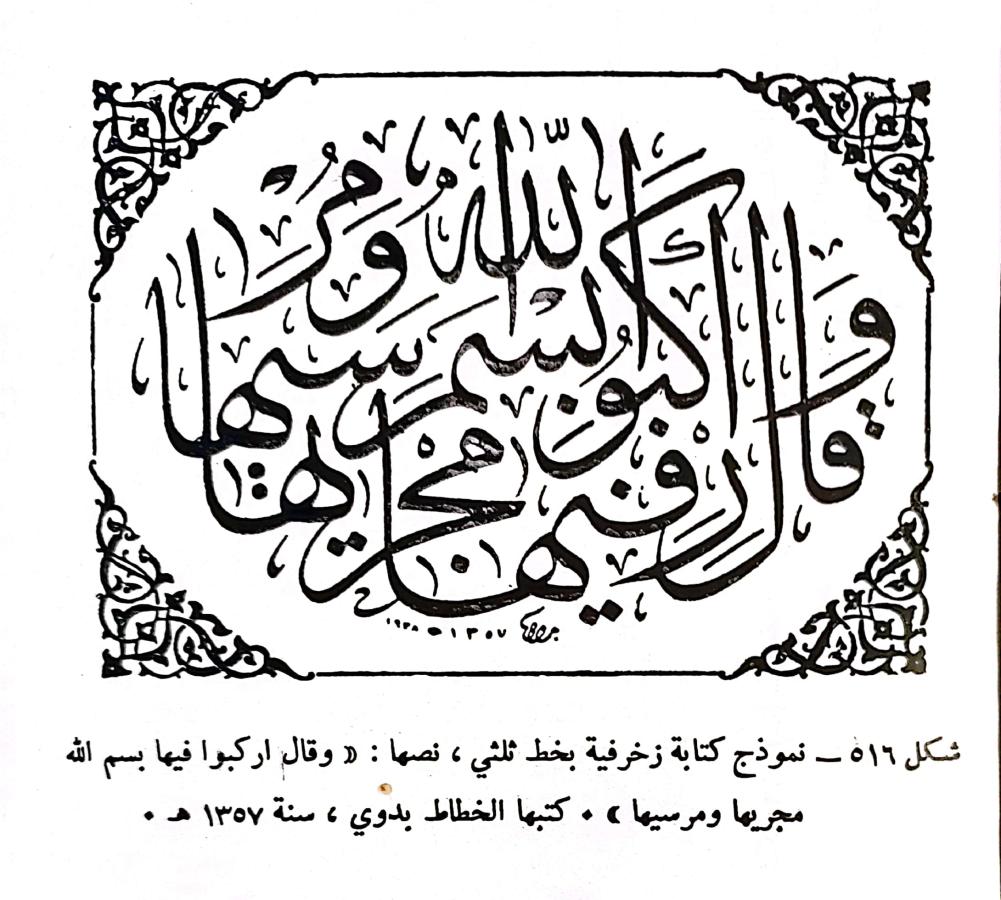 وقال اركبوا فيها بسم الله مجريها ومرسيها
١٣٥٧ هـ ١٩٣٨
شكل ٥١٦ ـ نموذج كتابة زخرفية بخط ثلثي ، نصها : « وقال اركبوا فيها بسم الله
مجريها ومرسيها » ٠ كتبها الخطاط بدوي ، سنة ١٣٥٧ هـ ٠